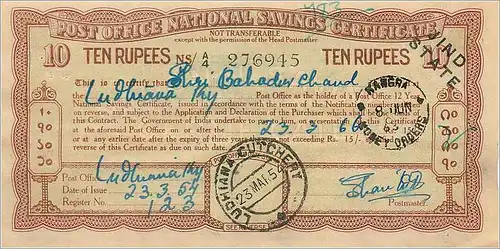 POST OFFICE NATIONAL SAVINGS CERTIFICATE
NOT TRANSFERABLE
except with the permission of the Head Postmaster
10 TEN RUPEES NS/ A/A 276945 TEN RUPEES 10
This is to certify that Shri Bahadur Chand
Ludhiana Post Office as the holder of a Post Office 12 Year
National Savings Certificate, issued in accordance with the terms of the Notification number
on reverse, and subject to the Application and Declaration of the Purchaser which shall be the
of this Contract. The Government of India undertake to pay
the aforesaid Post Office on or after the 23.3.66
or at any earlier date after the expiry of three years not exceeding Rs. 15/-
reverse of this Certificate as on such date
JIND
STATE
MONEY ORDERS
LUDHIANA CUTCHERY
23 MAR 54
Post Office Ludhiana
Date of Issue 23.3.54
Register No. 123
Postmaster.
SEE REVERSE